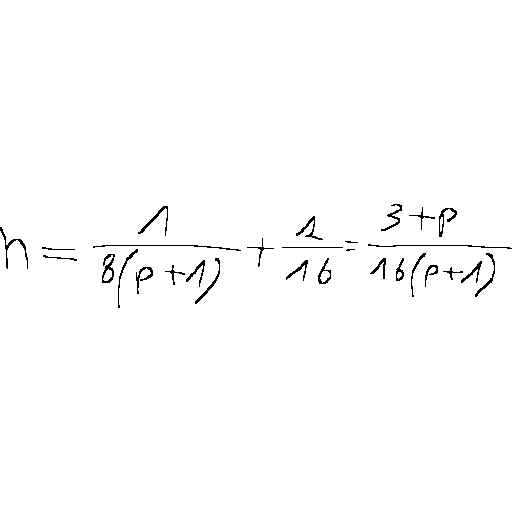 n = \frac{1}{8(p+1)} + \frac{1}{16} = \frac{3+p}{16(p+1)}